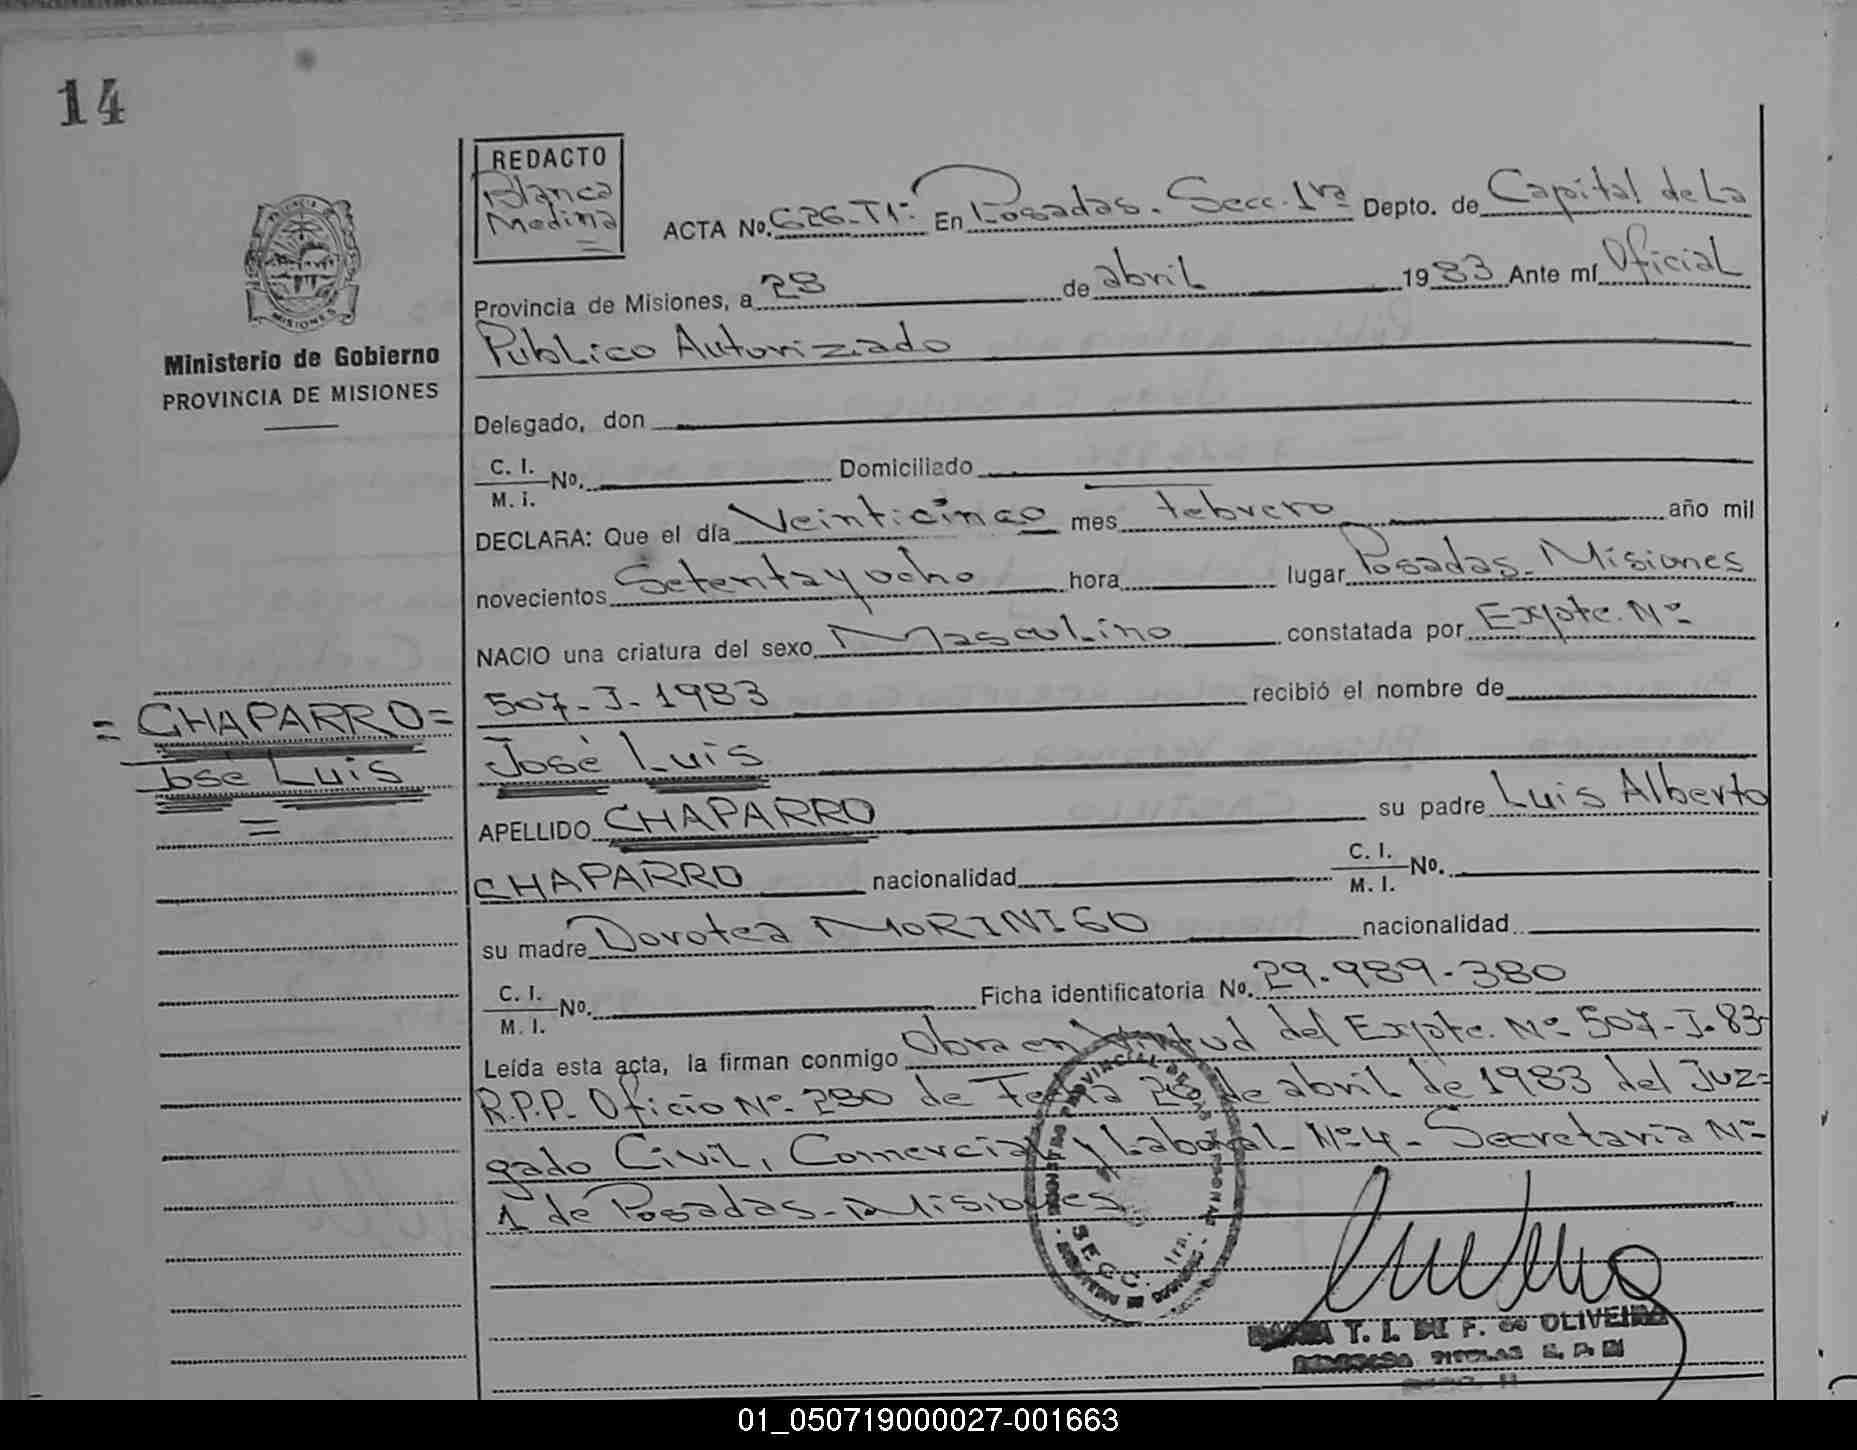 14
REDACTO
Blanca
Medina
=
ACTA No. 626-T1º En Posadas. Secc. 1ra Depto. de Capital de La
Provincia de Misiones, a 28 de abril 1983 Ante mí Oficial
Publico Autorizado
MISIONES
Ministerio de Gobierno
PROVINCIA DE MISIONES
Delegado, don
C. I. / M. i. No. Domiciliado
DECLARA: Que el día Veinticinco mes febrero año mil
novecientos Setenta y ocho hora lugar Posadas. Misiones
NACIO una criatura del sexo Masculino constatada por Expte. Nº
507-J-1983 recibió el nombre de
= CHAPARRO =
José Luis
=
José Luis
APELLIDO CHAPARRO su padre Luis Alberto
CHAPARRO nacionalidad C. I. / M. I. No.
su madre Dorotea MORINIGO nacionalidad
C. I. / M. I. No. Ficha identificatoria No. 29.989.380
Leída esta acta, la firman conmigo Obra en Virtud del Expte. Nº 507-J-83-
R.P.P. Oficio Nº 290 de Fecha 28 de abril de 1983 del Juz=
gado Civil, Comercial y Laboral Nº 4 - Secretaria Nº
1 de Posadas - Misiones
SECC. 1ra.
T. I. DE F. de OLIVEIRA
01_050719000027-001663